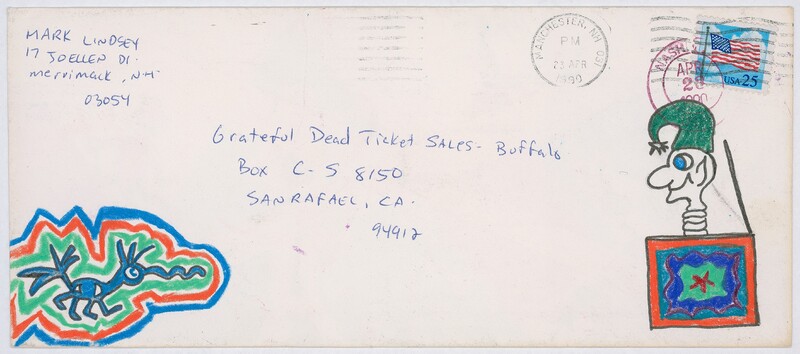 MARK LINDSEY
17 JOELLEN DR.
merrimack, NH
03054
MANCHESTER, NH 031
PM
23 APR
1990
WASH,
APR
1990
USA 25
Grateful Dead Ticket SALES - Buffalo
Box C-S 8150
SAN RAFAEL, CA.
94912